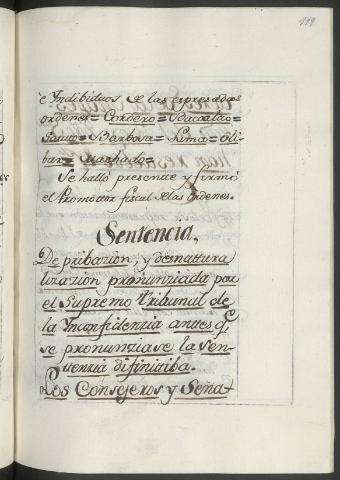 119
é Indibiduos de las expresadas
ordenes = Cordero = Bacalao =
Pauvo = Barbova = Lima = Oli-
bar = Machado =
Se halló presente y firmó
el Promotor fiscal de las ordenes.
Sentencia,
De pribazion, y desnattura
lizazion pronunziada por
el Supremo Tribunal de
la Ynconfidenzia anttes q.e
se pronunziase la Sen-
ttenzia difinitiba.
Los Consejeros y Sena-